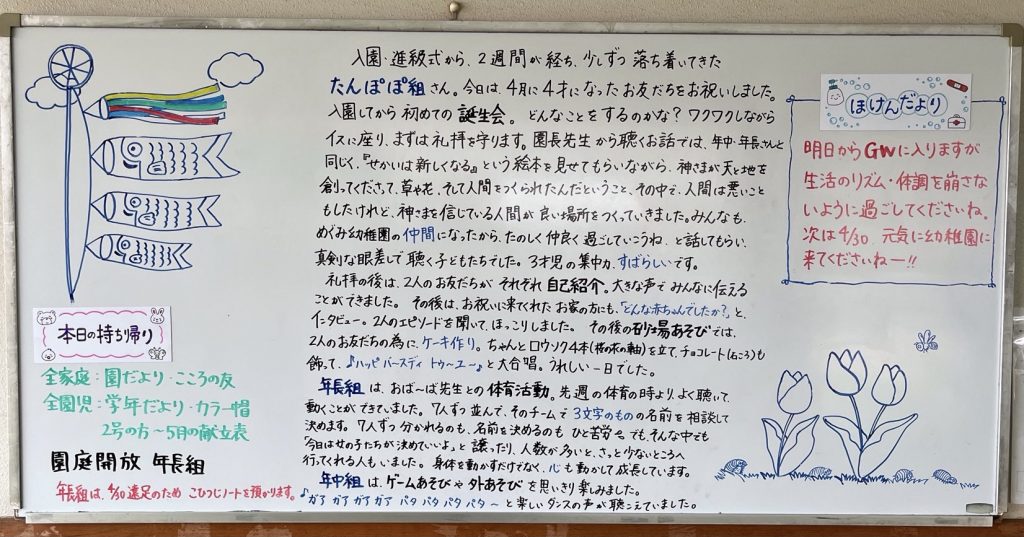 入園・進級式から、2週間が経ち、少しずつ落ち着いてきた
たんぽぽ組さん。今日は、4月に4才になったお友だちをお祝いしました。
入園してから初めての誕生会。どんなことをするのかな？ワクワクしながら
イスに座り、まずは礼拝を守ります。園長先生から聴くお話では、年中・年長さんと
同じく、『せかいは新しくなる』という絵本を見せてもらいながら、神さまが天と地を
創ってくださって、草や花、そして人間をつくられたんだということ、その中で、人間は悪いこと
もしたけれど、神さまを信じている人間が良い場所をつくっていきました。みんなも、
めぐみ幼稚園の仲間になったから、たのしく仲良く過ごしていこうね、と話してもらい、
真剣な眼差しで聴く子どもたちでした。3才児の集中力、すばらしいです。
礼拝の後は、2人のお友だちが それぞれ自己紹介。大きな声で みんなに伝える
ことができました。その後は、お祝いに来てくれた お家の方にも、「どんな赤ちゃんでしたか？」と、
インタビュー。2人のエピソードを聞いて、ほっこりしました。その後の砂場あそびでは、
2人のお友だちの為に、ケーキ作り。ちゃんとロウソク4本(桜の木の軸)を立て、チョコレート(石ころ)も
飾って、♪ハッピバースディ トゥーユー♪と大合唱。うれしい一日でした。
年長組は、おばーば先生との体育活動。先週の体育の時より、よく聴いて、
動くことができていました。7人ずつ並んで、そのチームで3文字のものの名前を相談して
決めます。7人ずつ分かれるのも、名前を決めるのも ひと苦労。でもそんな中でも
「今日は女の子たちが決めていいよ。」と譲ったり、人数が多いと、さっと少ないところへ
行ってくれる人もいました。身体を動かすだけでなく、心も動かして成長しています。
年中組は、ゲームあそびや外あそびを思いきり楽しみました。
♪ガァ ガァ ガァ ガァ パタ パタ パタ パタ～ と楽しいダンスの声が聴こえていました。
本日の持ち帰り
全家庭：園だより・こころの友
全園児：学年だより・カラー帽
2号の方～5月の献立表
園庭開放 年長組
年長組は、4/30遠足のため こひつじノートを預かります。
ほけんだより
明日からGWに入りますが
生活のリズム・体調を崩さな
いように過ごしてくださいね。
次は4/30、元気に幼稚園に
来てくださいねー!!